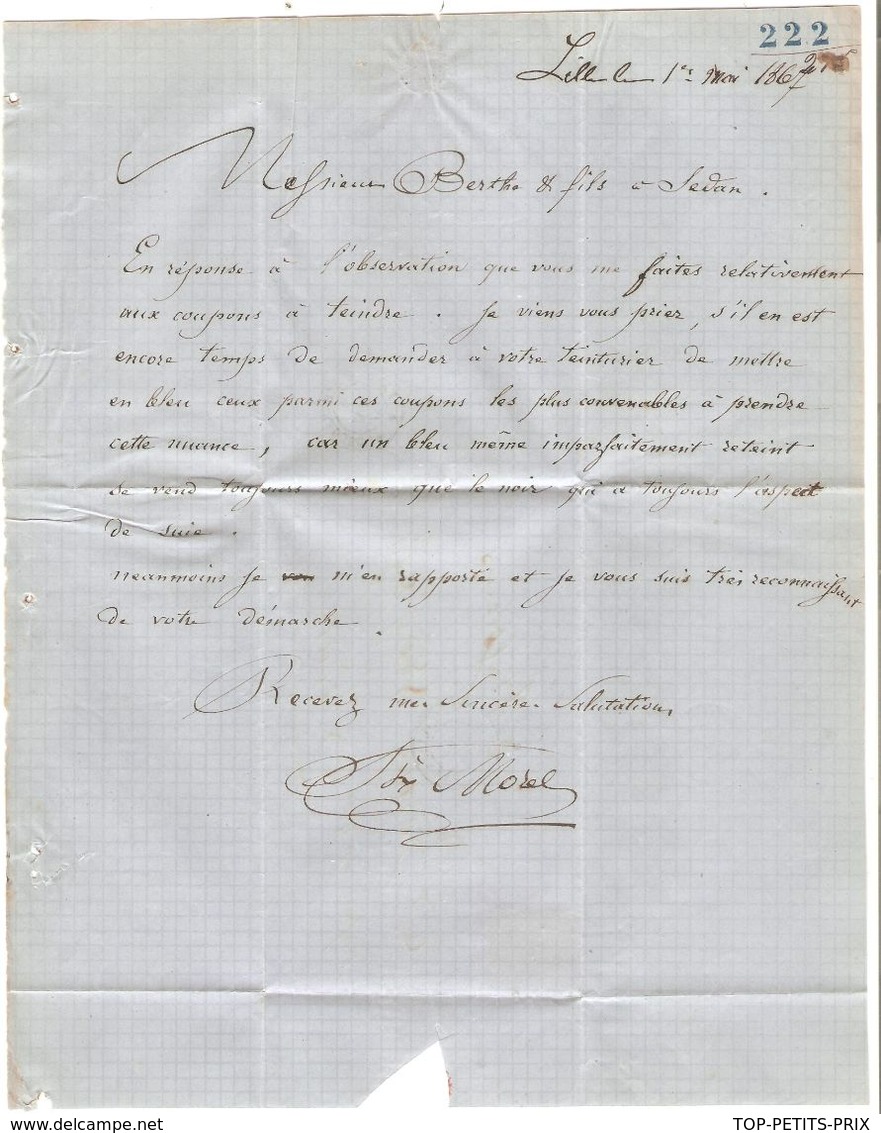 222
Lille le 1er Mai 1867
Messieurs Berthe & fils à Sedan.
En réponse à l'observation que vous me faites relativement
aux coupons à teindre. Je viens vous prier, s'il en est
encore temps de demander à votre teinturier de mettre
en bleu ceux parmi ces coupons les plus convenables à prendre
cette nuance, car un bleu même imparfaitement reteint
se vend toujours mieux que le noir qui a toujours l'aspect
de suie.
neanmoins je m'en rapporte et je vous suis très reconnaissant
de votre démarche.
Recevez mes Sincères Salutations
Morel
delcampe.net
TOP-PETITS-PRIX